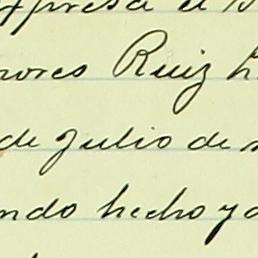 presa el
nores Ruiz L
de Julio de
ndo hecho y a